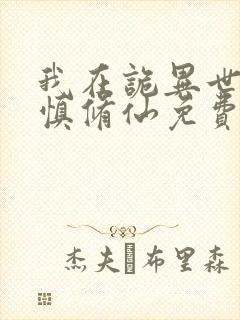 我在詭異世
慎脩仙免費
杰夫·布里森